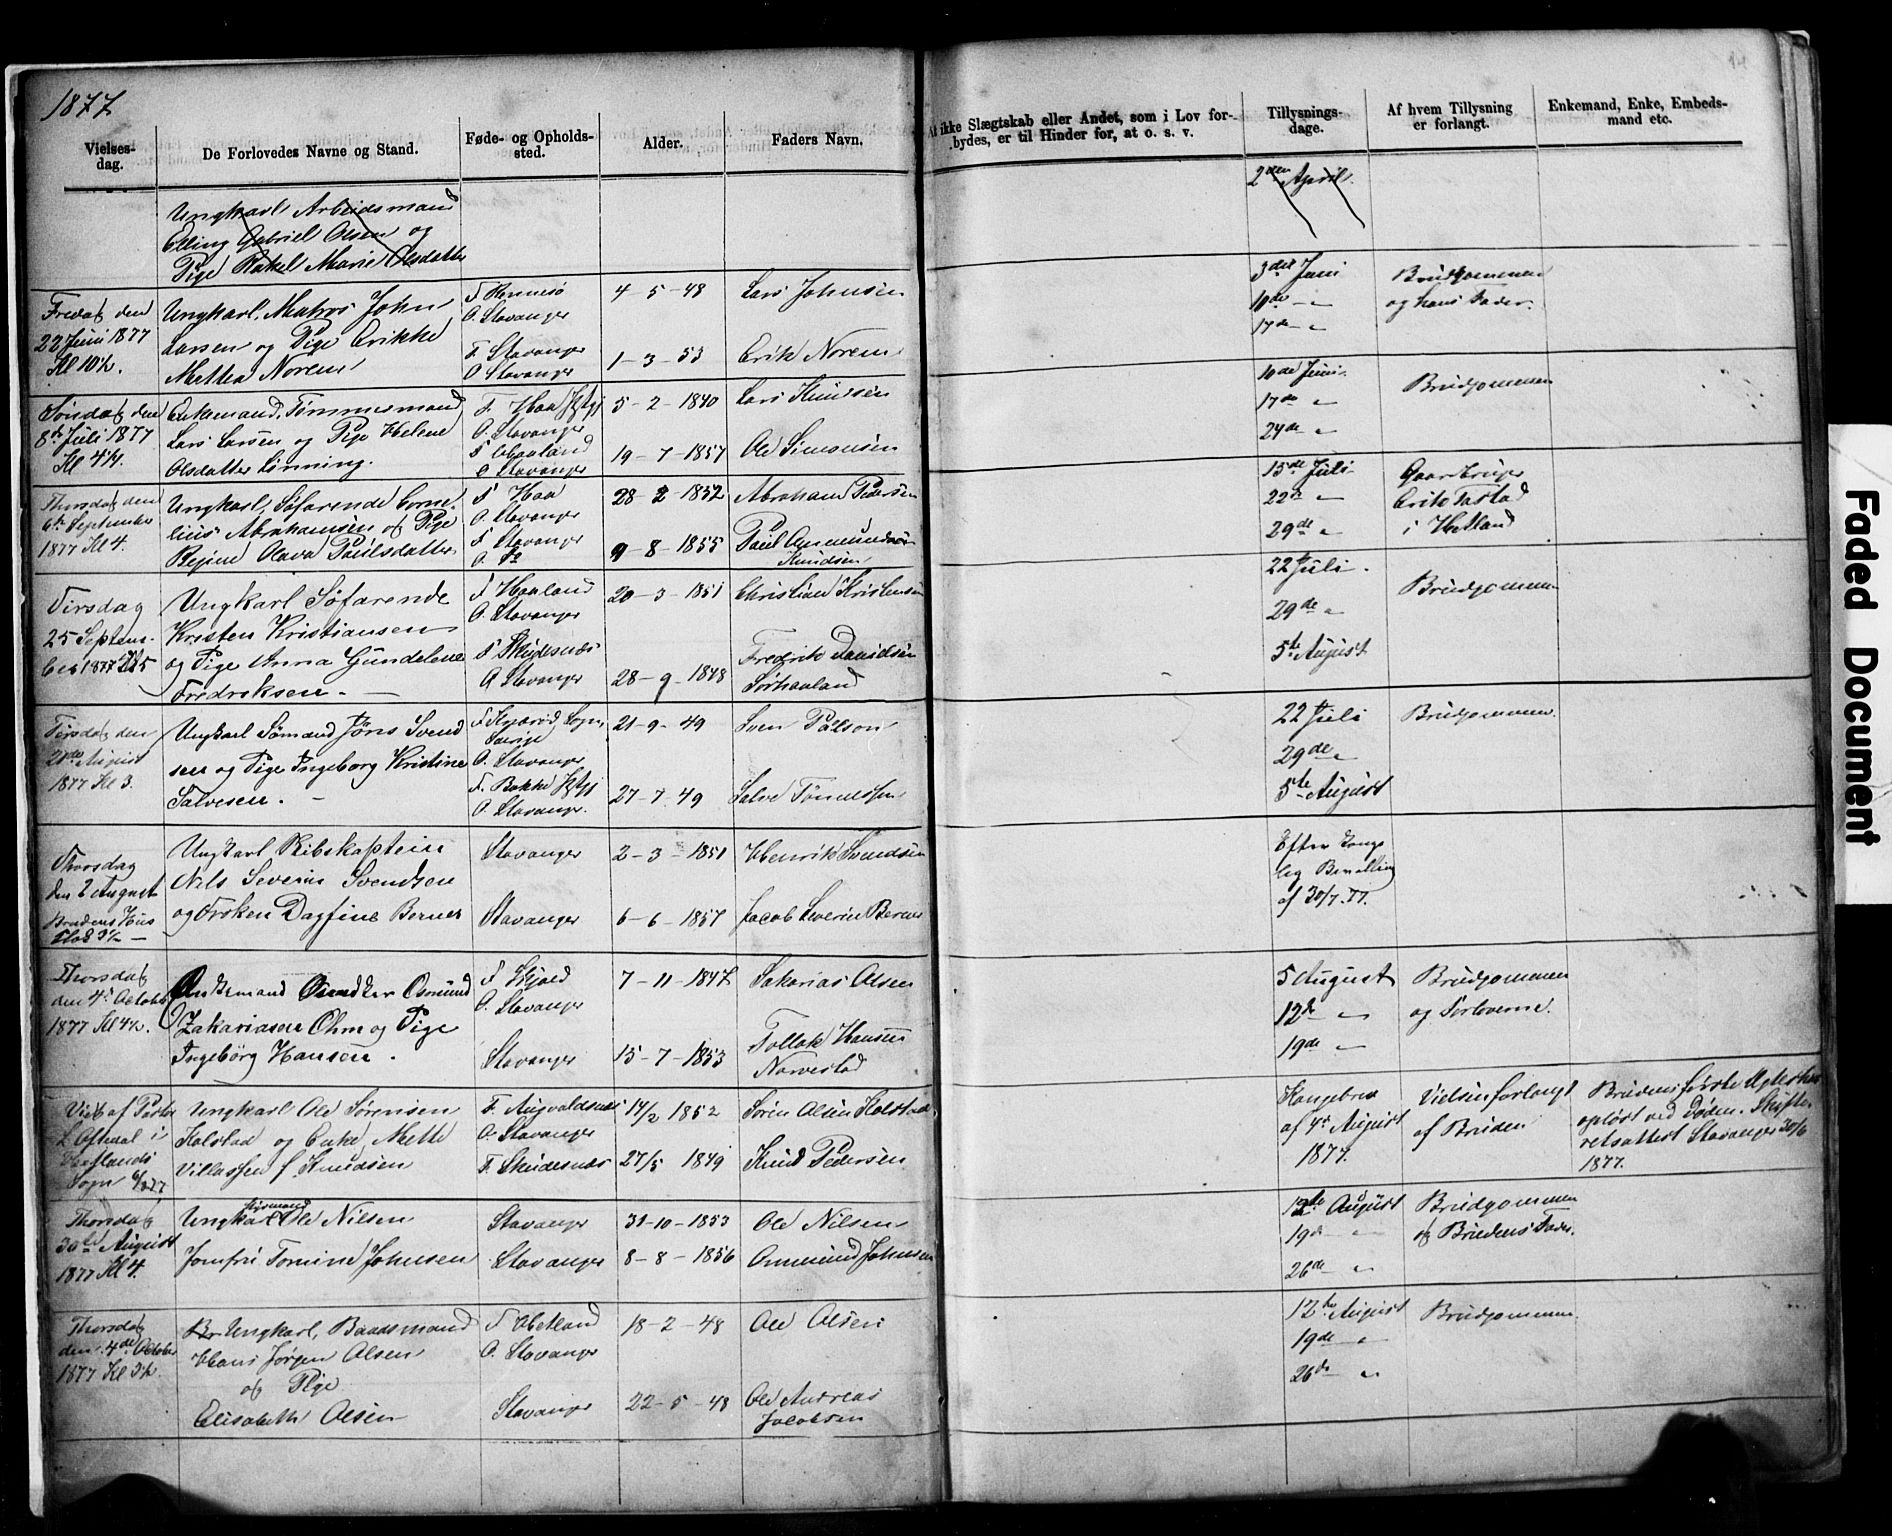 1877
Vielses-
dag.
De Forlovedes Navne og Stand.
Føde- og Opholds-
sted.
Alder.
Faders Navn.
At ikke Slægtskab eller Andet, som i Lov for-
bydes, er til Hinder for, at o. s. v.
Tillysnings-
dage.
Af hvem Tillysning
er forlangt.
Enkemand, Enke, Embeds-
mand etc.
Ungkarl Arbeidsmand
Elling Gabriel Olsen og
Pige Rakel Marie Olsdatter
2den April
Fredag den
22 Juni 1877
Kl 10½.
Ungkarl, Matros John
Larsen og Pige Erikke
Mettea Norem
F. Rennesø
O. Stavanger
F. Stavanger
O Stavanger
4-5-48
1-3-53
Lars Johnsen
Erik Norem
3die Juni
10de - "
17de - "
Brudgommen
og hans Fader.
Søndag den
8de Juli 1877
Kl 4½.
Enkemand, Tømmermand
Lars Larsen og Pige Helene
Olsdatter Lønning.
F. Haa
O. Stavanger
F Haaland
O Stavanger
5-2-1840
19-7-1857
Lars Knudsen
Ole Simonsen
10de Juni
17de "
24de "
Brudgommen
Thorsdag den
6te September
1877 Kl 4.
Ungkarl, Søfarende Corne-
lius Abrahamsen og Pige
Rejine Olava Paulsdatter
F Haa
O. Stavanger
F Stavanger
O. Do
28-2-1852
9-8-1855
Abraham Pedersen
Paul
Knudsen
15de Juli
22de "
29de "
Gaardbruger
Erik
i Hetland
Tirsdag
25 Septem-
ber 1877
Ungkarl Søfarende
Kristen Kristiansen
og Pige Anna Gundelene
Fredriksen. -
F Haaland
O. Stavanger
F Skudesnæs
O Stavanger
20-3-1851
28-9-1848
Christian Kristensen
Fredrik Davidsen
Sørhaaland
22 Juli.
29de "
5te August
Brudgommen
Tirsdag den
21de August
1877 Kl 3.
Ungkarl Sømand Jöns Svend
sen og Pige Ingeborg Kristine
Salvesen. -
Sverige
O. Stavanger
F. Bakke
O. Stavanger.
21-9-49
27-7-49
Sven Palson
Salve Tønnessen
22 Juli
29de "
5te August
Brudgommen.
Thorsdag
den 2 August
Brudens Hus
Ungkarl Skibskaptein
Nils Severin Svendsen
og Frøken Dagfine Berner
Stavanger
Stavanger
2-3-1851
6-6-1857
Henrik Svendsen
Jacob Severin Berner
Efter Konge
lig Bevilling
af 30/7.77.
Thorsdag
den 4de October
1877 Kl 4½.
Enkemand Osmund
Zakariasen Ohm og Pige
Ingebörg Hansen.
F. Skjold
O. Stavanger
Stavanger
7-11-1847
15-7-1853
Sakarias Olsen
Tollak Hansen
Norvestad
5 August
12te "
19de "
Brudgommen
og Forloverne.
Viet af
i
Sogn
Ungkarl Ole Sørensen
Kolstad og Enke Mette
Villassen f Knudsen
F. Augvaldsnæs
O. Stavanger
F. Skudesnæs
14/2 1852
27/5 1849
Søren Olsen Kolstad
Knud Pedersen
Kongebrev
af 4de August
1877.
Vielsen forlangt
af Bruden
Brudens første Ægteskab
opløst ved Døden. Skifte-
retsattest Stavanger 30/6
1877.
Thorsdag
30te August
1877 Kl 4.
Styrmand
Ungkarl Ole Nilsen
Jomfru Tomine Johnsen
Stavanger
Stavanger
31-10-1853
8-8-1856
Ole Nilsen
Ommund Johnsen
12te August
19de "
26de "
Brudgommen
og Brudens Fader.
Thorsdag
den 4de October
1877 Kl
Ungkarl, Baadsmand
Hans Jørgen Olsen
og Pige
Elisabeth Olsen
F Hetland
O. Stavanger
Stavanger
18-2-48
22-5-48
Ole Olsen
Ole Andreas
Jacobsen
12te August
19de "
26de "
Brudgommen.
Faded Document